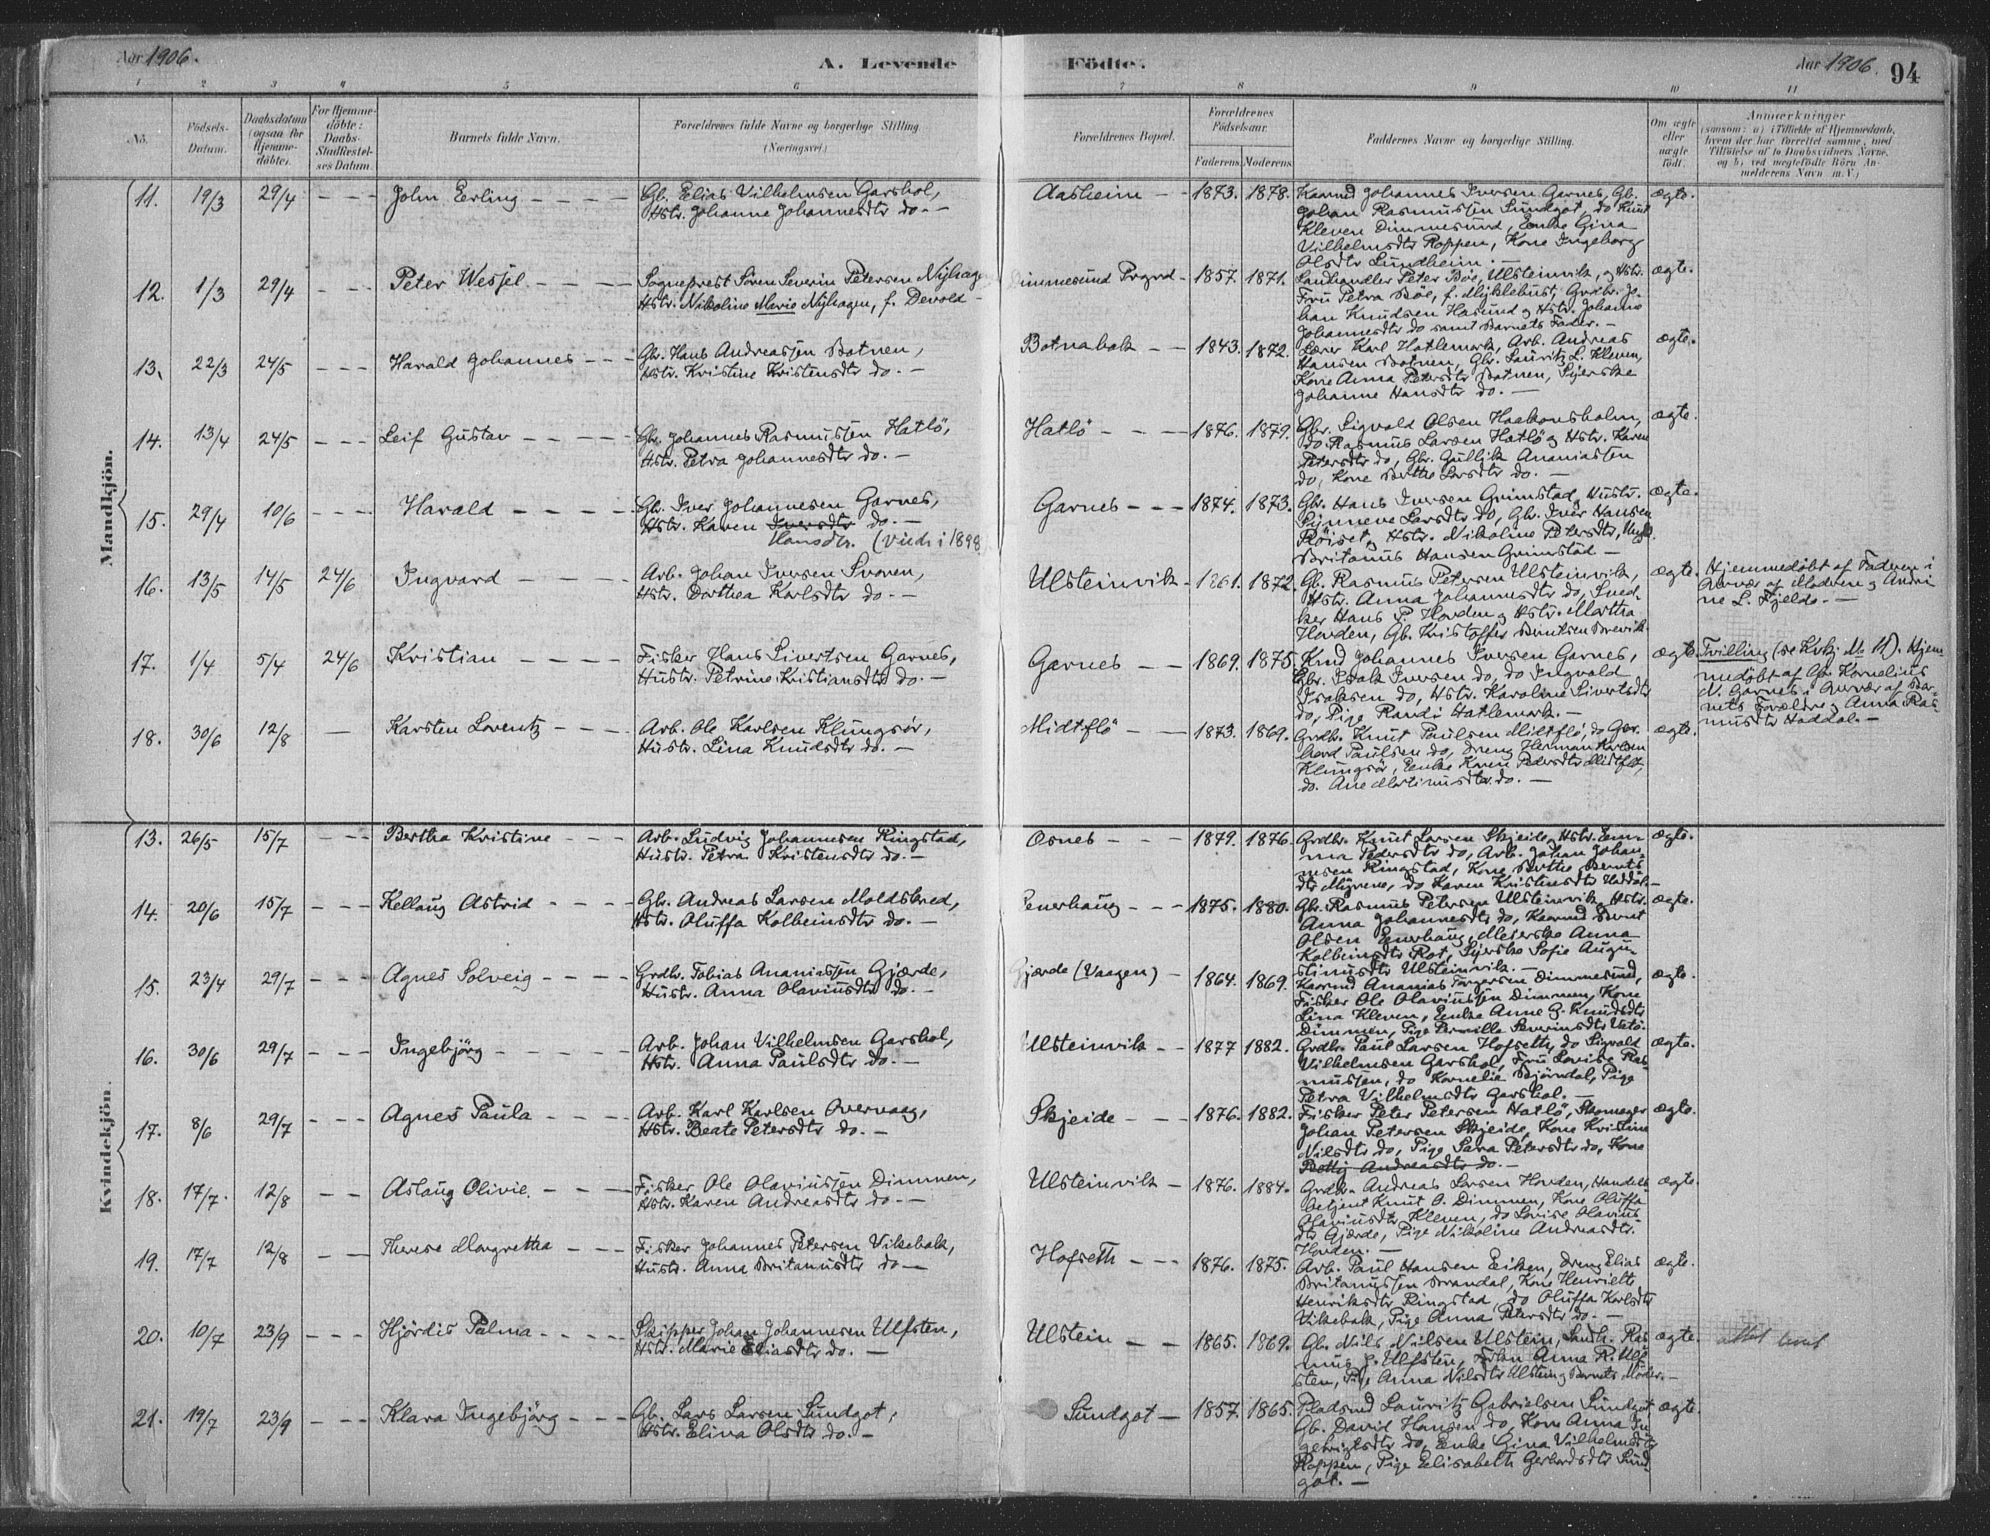 Aar 1906.
A. Levende Födte.
Aar 1906. 94
1 2 3 4 5 6 7 8 9 10 11
No.
Födsels-Datum.
Daabsdatum (ogsaa for Hjemmedöbte).
For Hjemmedöbte: Daabs-Stadfæstelses Datum.
Barnets fulde Navn.
Forældrenes fulde Navne og borgerlige Stilling. (Næringsvei.)
Forældrenes Bopæl.
Forældrenes Födselsaar. Faderens. Moderens.
Faddernes Navne og borgerlige Stilling.
Om ægte eller uægte födt.
Anmærkninger
Mandkjön.
11. 19/3 29/4 - - - John Erling - - - -
Gb. Elias Vilhelmsen Garshol,
Hstr. Johanne Johannesdtr do. -
Aasheim - - 1873. 1878.
Kaarmd Johannes Iversen Garnes, Gb.
Johan Rasmussen Sundgot, do Knut
Kleven Dimmesund, Enke Gina
Vilhelmsdtr Roppen, Kone Ingeborg
Olsdtr Sundheim. -
ægte.
12. 1/3 29/4 - - - Peter Wessel - - - -
Sogneprest Sören Severin Petersen Nyhagen
Hstr. Nikoline Marie Nyhagen, f. Devold -
Dimmesund Prgrd - 1857. 1871.
Landhandler Peter Böe, Ulsteinvik, og Hstr.
Fru Petra Böe, f. Myklebust, Grdbr. Jo-
han Knudsen Hasund og Hstr. Johanne
Johannesdtr do samt Barnets Fader. -
ægte.
13. 22/3 24/5 - - - Harald Johannes - - -
Gbr. Hans Andreassen Botnen,
Hstr. Kristine Kristensdtr do. -
Botnabak - - 1843. 1872.
Lærer Karl Hatlemark, Arb. Andreas
Hansen Botnen, Gbr. Lauritz L. Kleven,
Kone Anna Petersdtr Botnen, Syerske
Johanne Hansdtr do. -
ægte.
14. 13/4 24/5 - - - Leif Gustav - - - -
Gbr. Johannes Rasmussen Hatlö,
Hstr. Petra Johannesdtr do. -
Hatlö - - - 1876. 1879.
Gbr. Sigvald Olsen Haakonsholm,
do Rasmus Larsen Hatlö og Hstr. Karen
Petersdtr do, Gbr. Gullik Ananiassen
do, Kone Berthe Larsdtr do. -
ægte.
15. 29/4 10/6 - - - Harald - - - -
Gb. Iver Johannesen Garnes,
Hstr. Karen Iversdtr do. -
Hansdtr. (Viede i 1898
Garnes - - - 1874. 1873.
Gbr. Hans Iversen Grimstad, Hustr.
Synneve Larsdtr do, Gbr. Iver Hansen
Röiset og Hstr. Nikoline Petersdtr, Ungk.
Britanus Hansen Grimstad -
ægte.
16. 13/5 14/5 24/6 Ingvard - - - -
Arb. Johan Iversen Svoren,
Hstr. Dorthea Karlsdtr do. -
Ulsteinvik - 1861. 1872.
Gb. Rasmus Petersen Ulsteinvik,
Hstr. Anna Johannesdtr do, Sned-
ker Hans P. Hovden og Hstr. Martha
Hovden, Gb. Kristoffer Berntsen Brevik
ægte.
Hjemmedöbt af Faderen i
Nærvær af Moderen og Andri-
ne L. Fjelde. -
17. 1/4 5/4 24/6 Kristian - - - -
Fisker Hans Sivertsen Garnes,
Hustr. Petrine Kristiansdtr do. -
Garnes - - 1869. 1875.
Krmd Johannes Iversen Garnes,
Gbr. Isak Iversen do, do Ingvald
Isaksen do, Hstr. Karoline Sivertsdtr
do, Pige Randi Hatlemark. -
ægte.
Tvilling (se Kvkj. No 11). Hjem-
medöbt af Gb. Kornelius
N. Garnes i Nærvær af Bar-
nets Forældre og Anna Ras-
musdtr Haddal. -
18. 30/6 12/8 - Karsten Lorentz - - -
Arb. Ole Karlsen Klungsör,
Hustr. Lina Knudsdtr do. -
Midtflö - - 1873. 1869.
Grdbr. Knut Paulsen Midtflö, do Ger-
hard Paulsen do, Dreng Herman Karlsen
Klungsör, Enke Karen Pedersdtr Midtflö,
do. Ane Martinusdtr do. -
ægte.
Kvindekjön.
13. 26/5 15/7 - - - Bertha Kristine - - -
Arb. Ludvig Johannesen Ringstad,
Hustr. Petra Kristensdtr do. -
Osnes - - 1879. 1876.
Grdbr. Knut Larsen Skjeide, Hstr. Em-
ma Pedersdtr do, Arb. Johan Johan-
nesen Ringstad, Kone Berthe Bernts-
dtr Myrene, do Karen Kristensdtr Haddal. -
ægte.
14. 20/6 15/7 - - - Kellaug Astrid - - - -
Gbr. Andreas Larsen Moldskred,
Hstr. Oluffa Kolbeinsdtr do. -
Eenerhaug - - - 1875. 1880.
Gbr. Rasmus Petersen Ulsteinvik, Hstr.
Anna Johannesdtr do, Kaarmd Bernt
Olsen Eenerhaug, Meierske Anna
Kolbeinsdtr Rot, Syerske Sofie Augu-
stinusdtr Ulsteinvik. -
ægte.
15. 23/4 29/7 - - - Agnes Solveig - - - -
Grdbr. Tobias Ananiassen Gjærde,
Hustr. Anna Olaviusdtr do. -
Gjærde (Vaagen) - 1864. 1869.
Kaarmd Ananias Torgersen Dimmesund,
Fisker Ole Olaviussen Dimmen, Kone
Lina Kleven, Enke Anne G. Knudsdtr
Dimmen, Pige Pernille Severinsdtr
ægte.
16. 30/6 29/7 - - - Ingebjörg - - - - -
Arb. Johan Vilhelmsen Garshol,
Hstr. Anna Paulsdtr do. -
Ulsteinvik - - 1877 1882.
Grdbr. Paul Larsen Hofseth, do Sigvald
Vilhelmsen Garshol, Fru Lovise Ras-
mussen, do Kornelie Björndal, Pige
Petra Vilhelmsdtr Garshol. -
ægte.
17. 8/6 29/7 - - - Agnes Paula - - - -
Arb. Karl Karlsen Overvaag,
Hstr. Beate Petersdtr do. -
Skjeide - - - 1876. 1882.
Fisker Peter Petersen Hatlö, Skomager
Johan Petersen Skjeide, Kone Kristine
Nilsdtr do, Pige Sara Petersdtr do, Kone
Betty Andreasdtr do. -
ægte.
18. 17/7. 12/8 - - Aslaug Olivie. - - - -
Fisker Ole Olaviussen Dimmen,
Hstr. Karen Andreasdtr do. -
Ulsteinvik - 1876. 1884.
Grdbr. Andreas Larsen Hovden, Handels-
betjent Knut O. Dimmen, Kone Oluffa
Olaviusdtr Kleven, do Lovise Olavius-
dtr Gjærde, Pige Nikoline Andreasdtr
Hovden. -
ægte.
19. 17/7 12/8 - - Therese Margretha - - -
Fisker Johannes Petersen Vikebak,
Hustr. Anna Britanusdtr do -
Hofseth - - - 1876. 1875.
Arb. Paul Hansen Eiken, Dreng Elias
Britanussen Brandal, Kone Henriette
Henriksdtr Ringstad, do Oluffa Karlsdtr
Vikebak, Pige Anna Petersdtr do. -
ægte.
20. 10/7 23/9 - - - Hjördis Palma - - - - -
Skipper Johan Johannesen Ulfsten,
Hstr. Marie Eliasdtr do. -
Ulstein - - 1865. 1869.
Gb. Nils Nilsen Ulstein, Landh. Ras-
mus J. Ulfsten, Frkn Anna R. Ulf-
sten, Pige Anna Nilsdtr Ulstein og Barnets Moder. -
ægte.
21. 19/7 23/9 - - - Klara Ingebjörg - - -
Gb. Lars Larsen Sundgot,
Hstr. Elina Olsdtr do. -
Sundgot - 1857. 1865.
Pladsmd Lauritz Gabrielsen Sundgot
Gb. David Hansen do, Kone Anna In-
gebrigtsdtr do, Enke Gina Vilhelmsdtr
Roppen, Pige Elisabeth Gerhardsdtr Sund-
got. -
ægte.